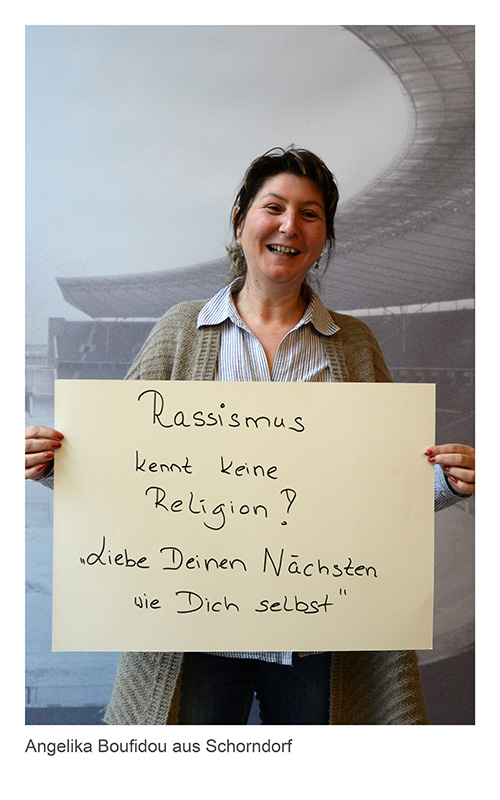 Rassismus
kennt keine
Religion?!
„Liebe Deinen Nächsten
wie Dich selbst"
Angelika Boufidou aus Schorndorf